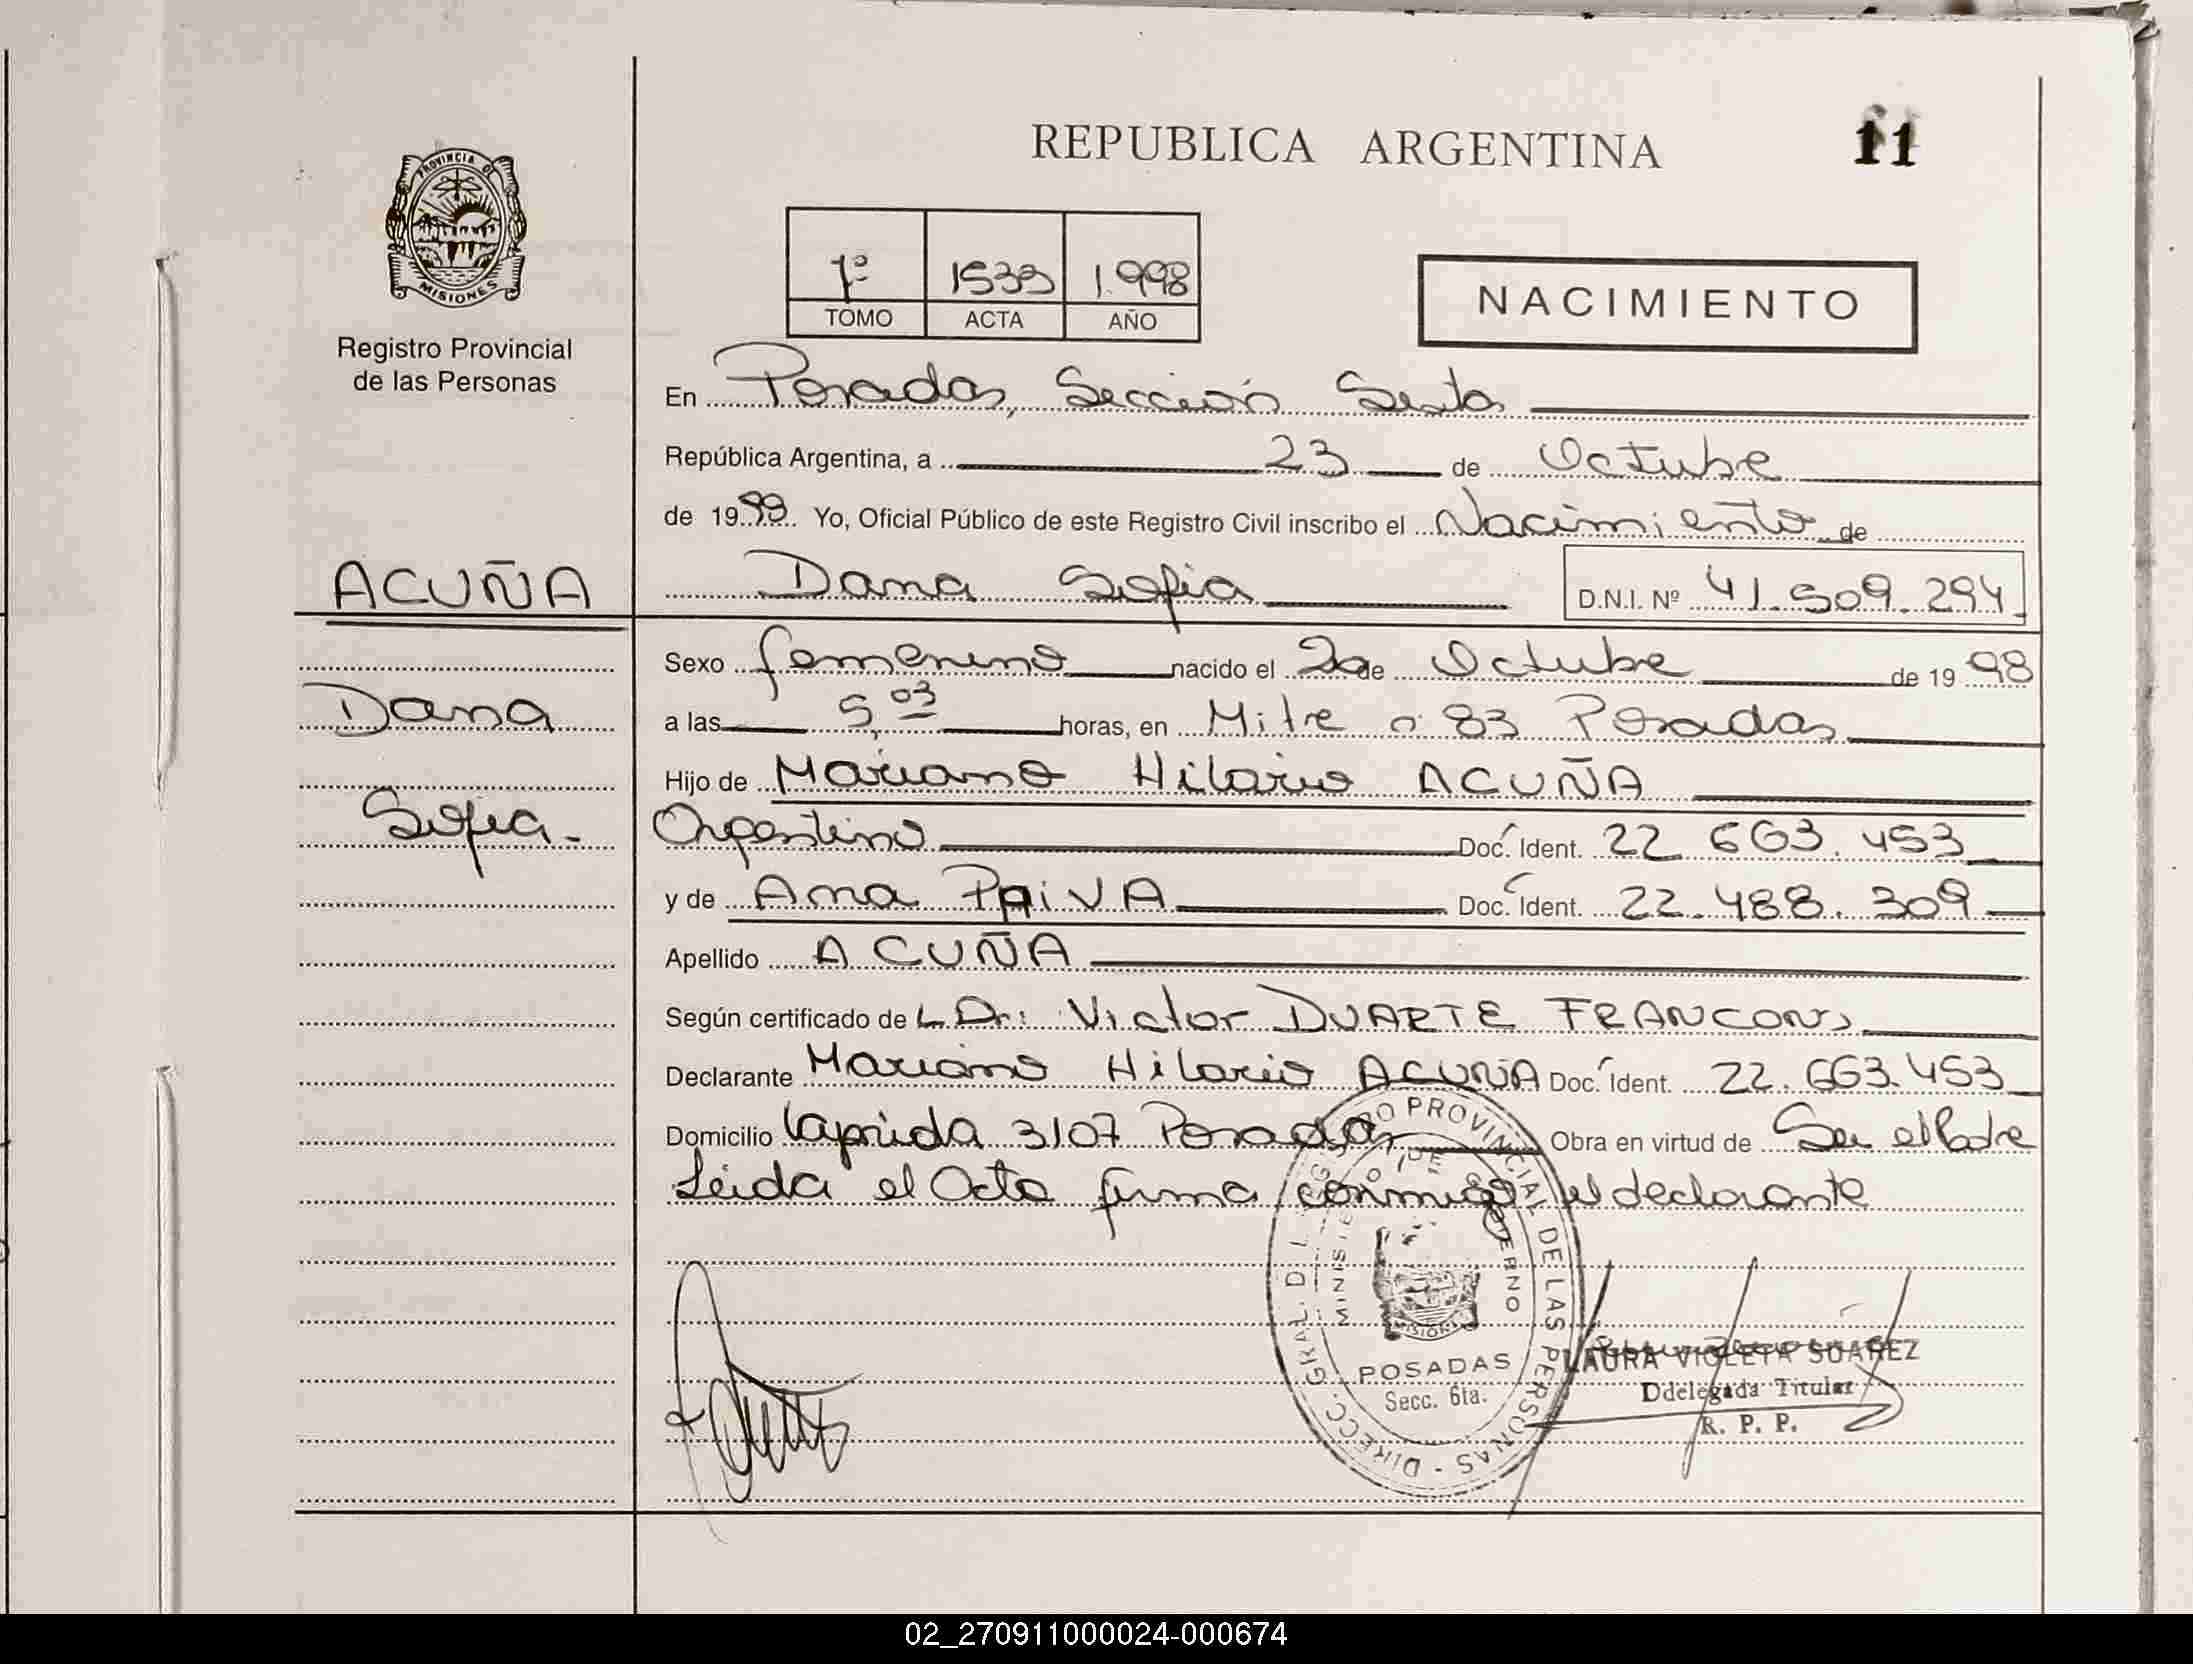 REPUBLICA ARGENTINA
11
PROVINCIA DE
MISIONES
Registro Provincial
de las Personas
1º 1533 1.998
TOMO ACTA AÑO
NACIMIENTO
En Posadas, Sección Sexta
República Argentina, a 23 de Octubre
de 19 Yo, Oficial Público de este Registro Civil inscribo el Nacimiento de
ACUÑA
Dana Sofia D.N.I. Nº 41.509.294
Sexo femenino nacido el 20 de Octubre de 19 98
Dana
a las 5,03 horas, en Mitre nº 83 Posadas
Hijo de Mariano Hilario ACUÑA
Sofia.
Argentino Doc. Ident. 22 663.453
y de Ana PAiVA Doc. Ident. 22.488.309
Apellido ACUÑA
Según certificado de L Dr: Victor DUARTE
Declarante Mariano Hilario ACUÑA Doc. Ident. 22.663.453
Domicilio Laprida 3107 Posadas Obra en virtud de Ser el Padre
Leida el Acta firma conmigo el declarante
DIRECC. GRAL. DEL REGISTRO PROVINCIAL DE LAS PERSONAS
MINISTERIO DE GOBIERNO
POSADAS
Secc. 6ta.
LAURA VIOLETA SUAREZ
Ddelegada Titular
R. P. P.
02_270911000024-000674